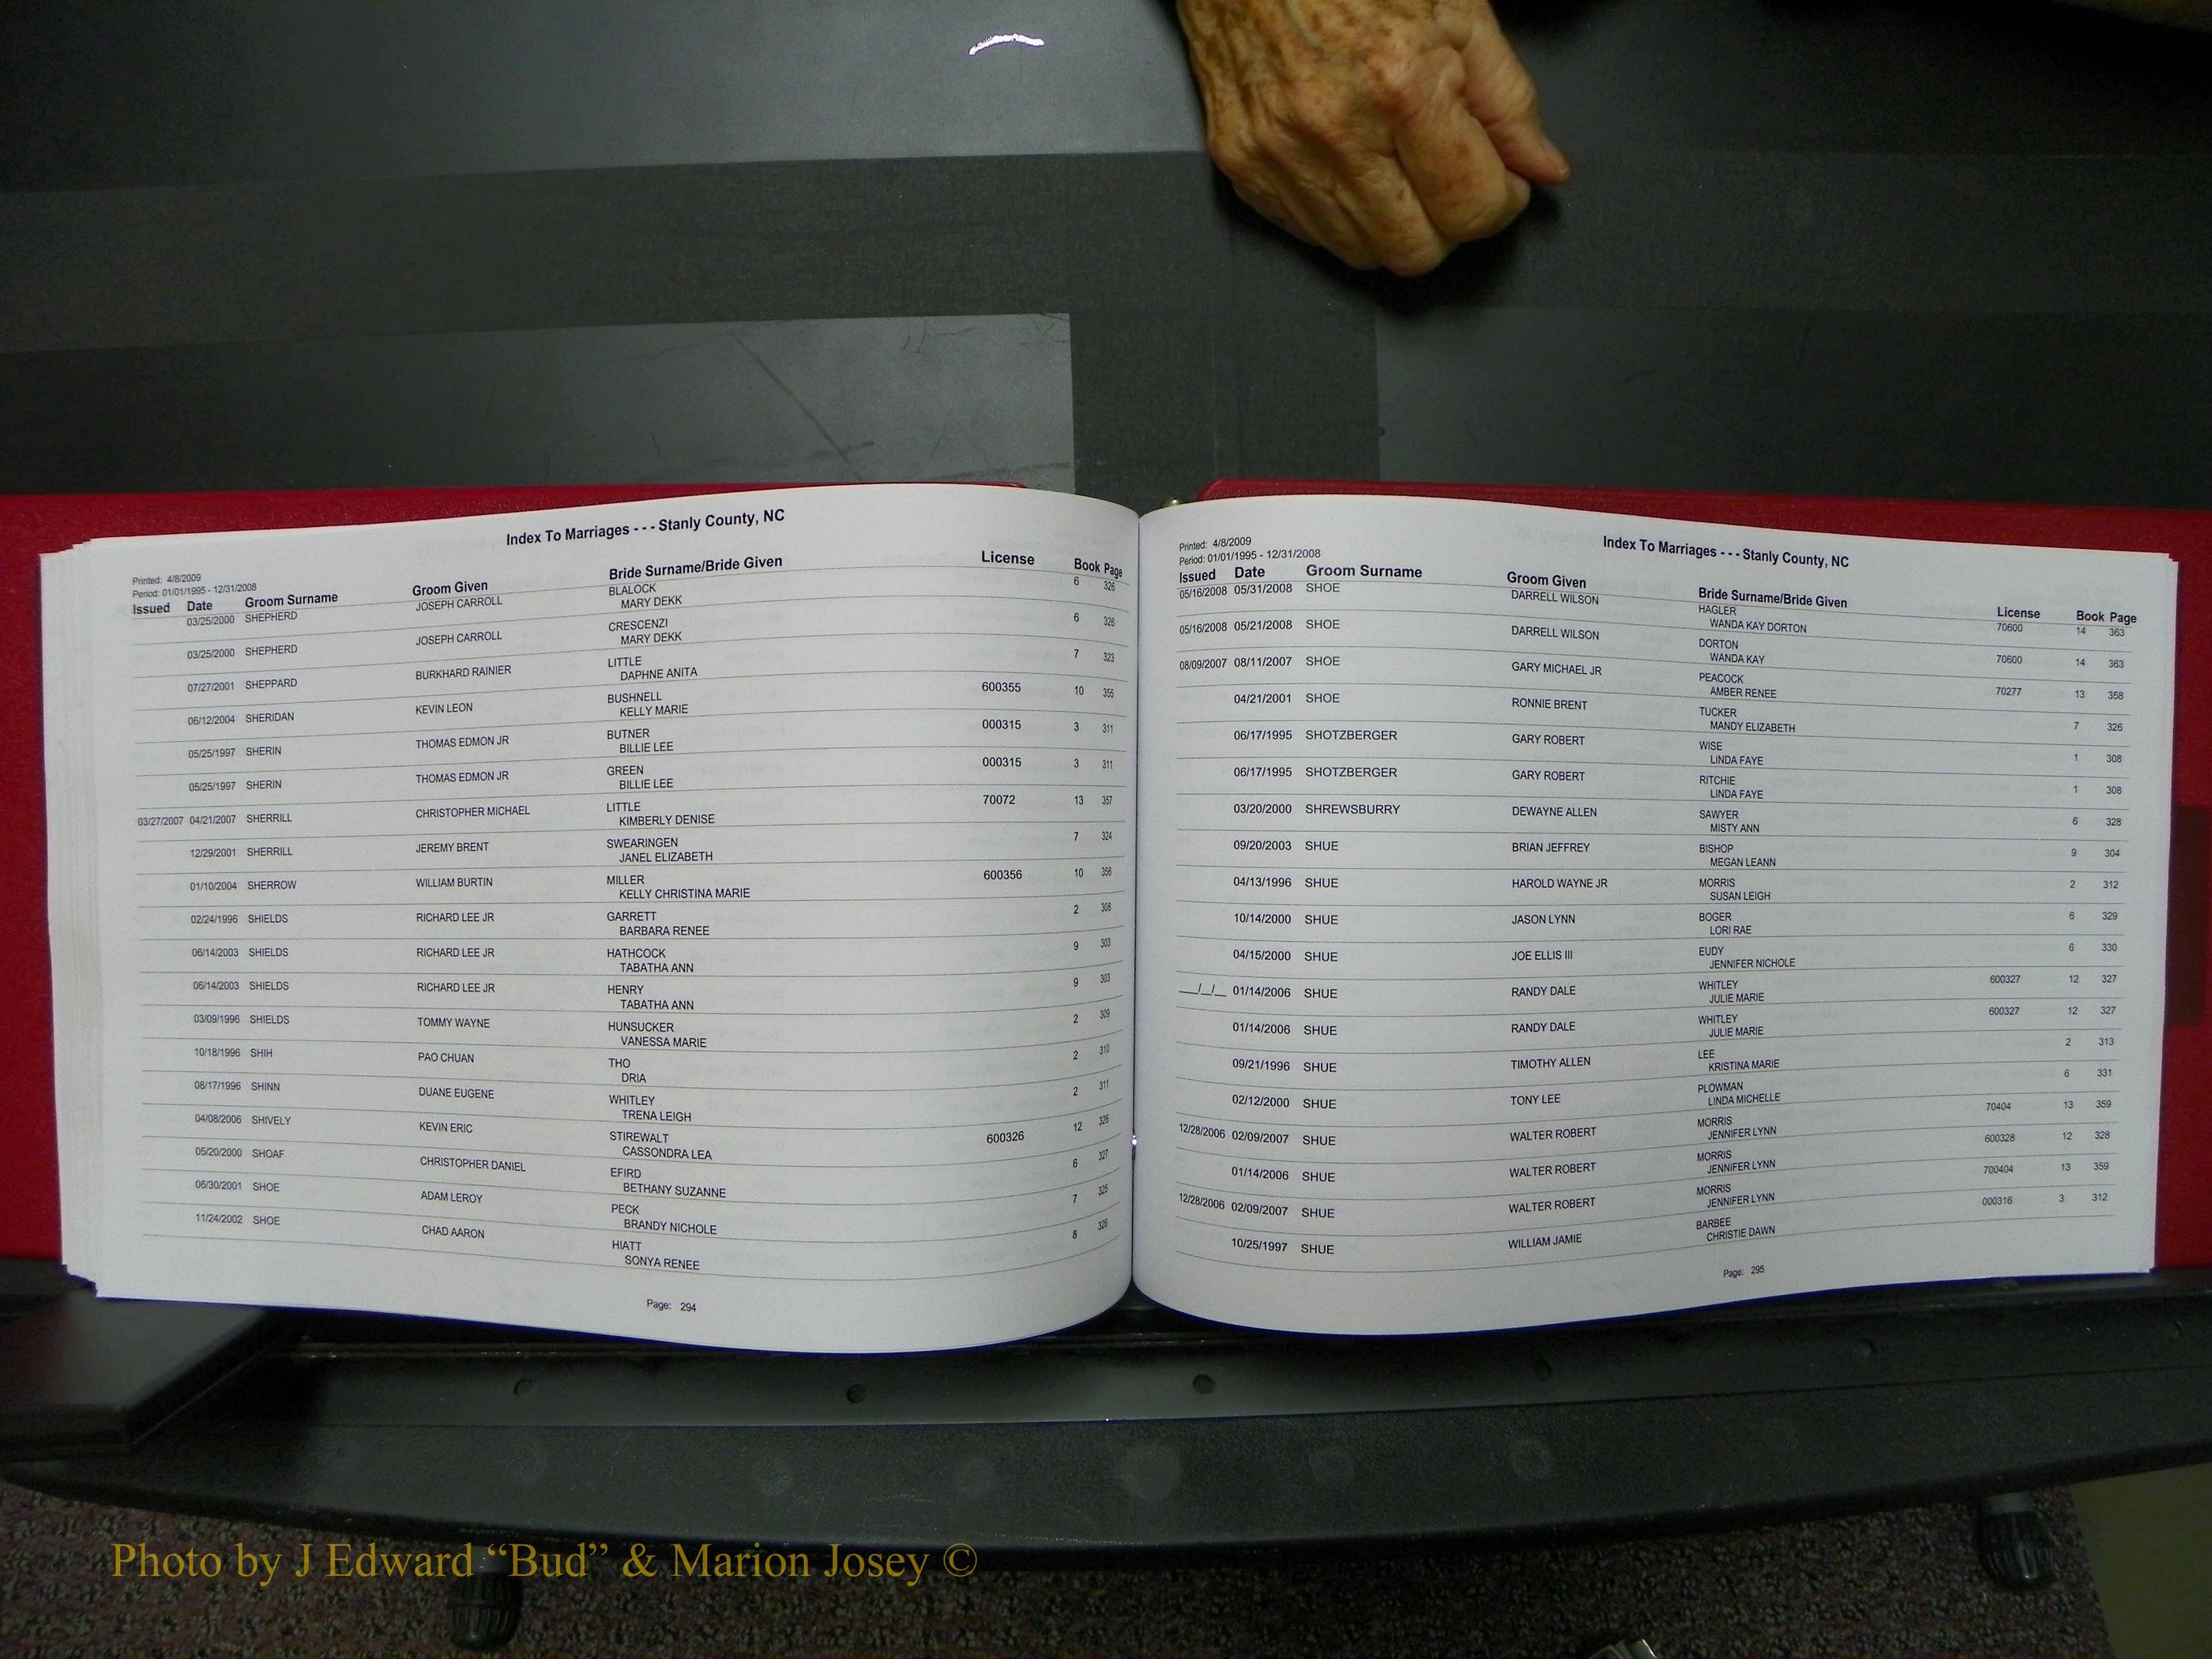 Index To Marriages - - - Stanly County, NC
Printed: 4/8/2009
Period: 01/01/1995 - 12/31/2008
Issued Date Groom Surname Groom Given Bride Surname/Bride Given License Book Page
03/25/2000 SHEPHERD JOSEPH CARROLL BLALOCK 6 326
MARY DEKK
03/25/2000 SHEPHERD JOSEPH CARROLL CRESCENZI 6 326
MARY DEKK
07/27/2001 SHEPPARD BURKHARD RAINIER LITTLE 7 323
DAPHNE ANITA
06/12/2004 SHERIDAN KEVIN LEON BUSHNELL 600355 10 355
KELLY MARIE
05/25/1997 SHERIN THOMAS EDMON JR BUTNER 000315 3 311
BILLIE LEE
05/25/1997 SHERIN THOMAS EDMON JR GREEN 000315 3 311
BILLIE LEE
03/27/2007 04/21/2007 SHERRILL CHRISTOPHER MICHAEL LITTLE 70072 13 357
KIMBERLY DENISE
12/29/2001 SHERRILL JEREMY BRENT SWEARINGEN 7 324
JANEL ELIZABETH
01/10/2004 SHERROW WILLIAM BURTIN MILLER 600356 10 356
KELLY CHRISTINA MARIE
02/24/1996 SHIELDS RICHARD LEE JR GARRETT 2 308
BARBARA RENEE
06/14/2003 SHIELDS RICHARD LEE JR HATHCOCK 9 303
TABATHA ANN
06/14/2003 SHIELDS RICHARD LEE JR HENRY 9 303
TABATHA ANN
03/09/1996 SHIELDS TOMMY WAYNE HUNSUCKER 2 309
VANESSA MARIE
10/18/1996 SHIH PAO CHUAN THO 2 310
DRIA
08/17/1996 SHINN DUANE EUGENE WHITLEY 2 311
TRENA LEIGH
04/08/2006 SHIVELY KEVIN ERIC STIREWALT 600326 12 326
CASSONDRA LEA
05/20/2000 SHOAF CHRISTOPHER DANIEL EFIRD 6 327
BETHANY SUZANNE
06/30/2001 SHOE ADAM LEROY PECK 7 325
BRANDY NICHOLE
11/24/2002 SHOE CHAD AARON HIATT 8 326
SONYA RENEE
Page: 294
Index To Marriages - - - Stanly County, NC
Printed: 4/8/2009
Period: 01/01/1995 - 12/31/2008
Issued Date Groom Surname Groom Given Bride Surname/Bride Given License Book Page
05/16/2008 05/31/2008 SHOE DARRELL WILSON HAGLER 70600 14 363
WANDA KAY DORTON
05/16/2008 05/21/2008 SHOE DARRELL WILSON DORTON 70600 14 363
WANDA KAY
08/09/2007 08/11/2007 SHOE GARY MICHAEL JR PEACOCK 70277 13 358
AMBER RENEE
04/21/2001 SHOE RONNIE BRENT TUCKER 7 326
MANDY ELIZABETH
06/17/1995 SHOTZBERGER GARY ROBERT WISE 1 308
LINDA FAYE
06/17/1995 SHOTZBERGER GARY ROBERT RITCHIE 1 308
LINDA FAYE
03/20/2000 SHREWSBURRY DEWAYNE ALLEN SAWYER 6 328
MISTY ANN
09/20/2003 SHUE BRIAN JEFFREY BISHOP 9 304
MEGAN LEANN
04/13/1996 SHUE HAROLD WAYNE JR MORRIS 2 312
SUSAN LEIGH
10/14/2000 SHUE JASON LYNN BOGER 6 329
LORI RAE
04/15/2000 SHUE JOE ELLIS III EUDY 6 330
JENNIFER NICHOLE
__/_/__ 01/14/2006 SHUE RANDY DALE WHITLEY 600327 12 327
JULIE MARIE
01/14/2006 SHUE RANDY DALE WHITLEY 600327 12 327
JULIE MARIE
09/21/1996 SHUE TIMOTHY ALLEN LEE 2 313
KRISTINA MARIE
02/12/2000 SHUE TONY LEE PLOWMAN 6 331
LINDA MICHELLE
12/28/2006 02/09/2007 SHUE WALTER ROBERT MORRIS 70404 13 359
JENNIFER LYNN
01/14/2006 SHUE WALTER ROBERT MORRIS 600328 12 328
JENNIFER LYNN
12/28/2006 02/09/2007 SHUE WALTER ROBERT MORRIS 700404 13 359
JENNIFER LYNN
10/25/1997 SHUE WILLIAM JAMIE BARBEE 000316 3 312
CHRISTIE DAWN
Page: 295
Photo by J Edward “Bud” & Marion Josey ©